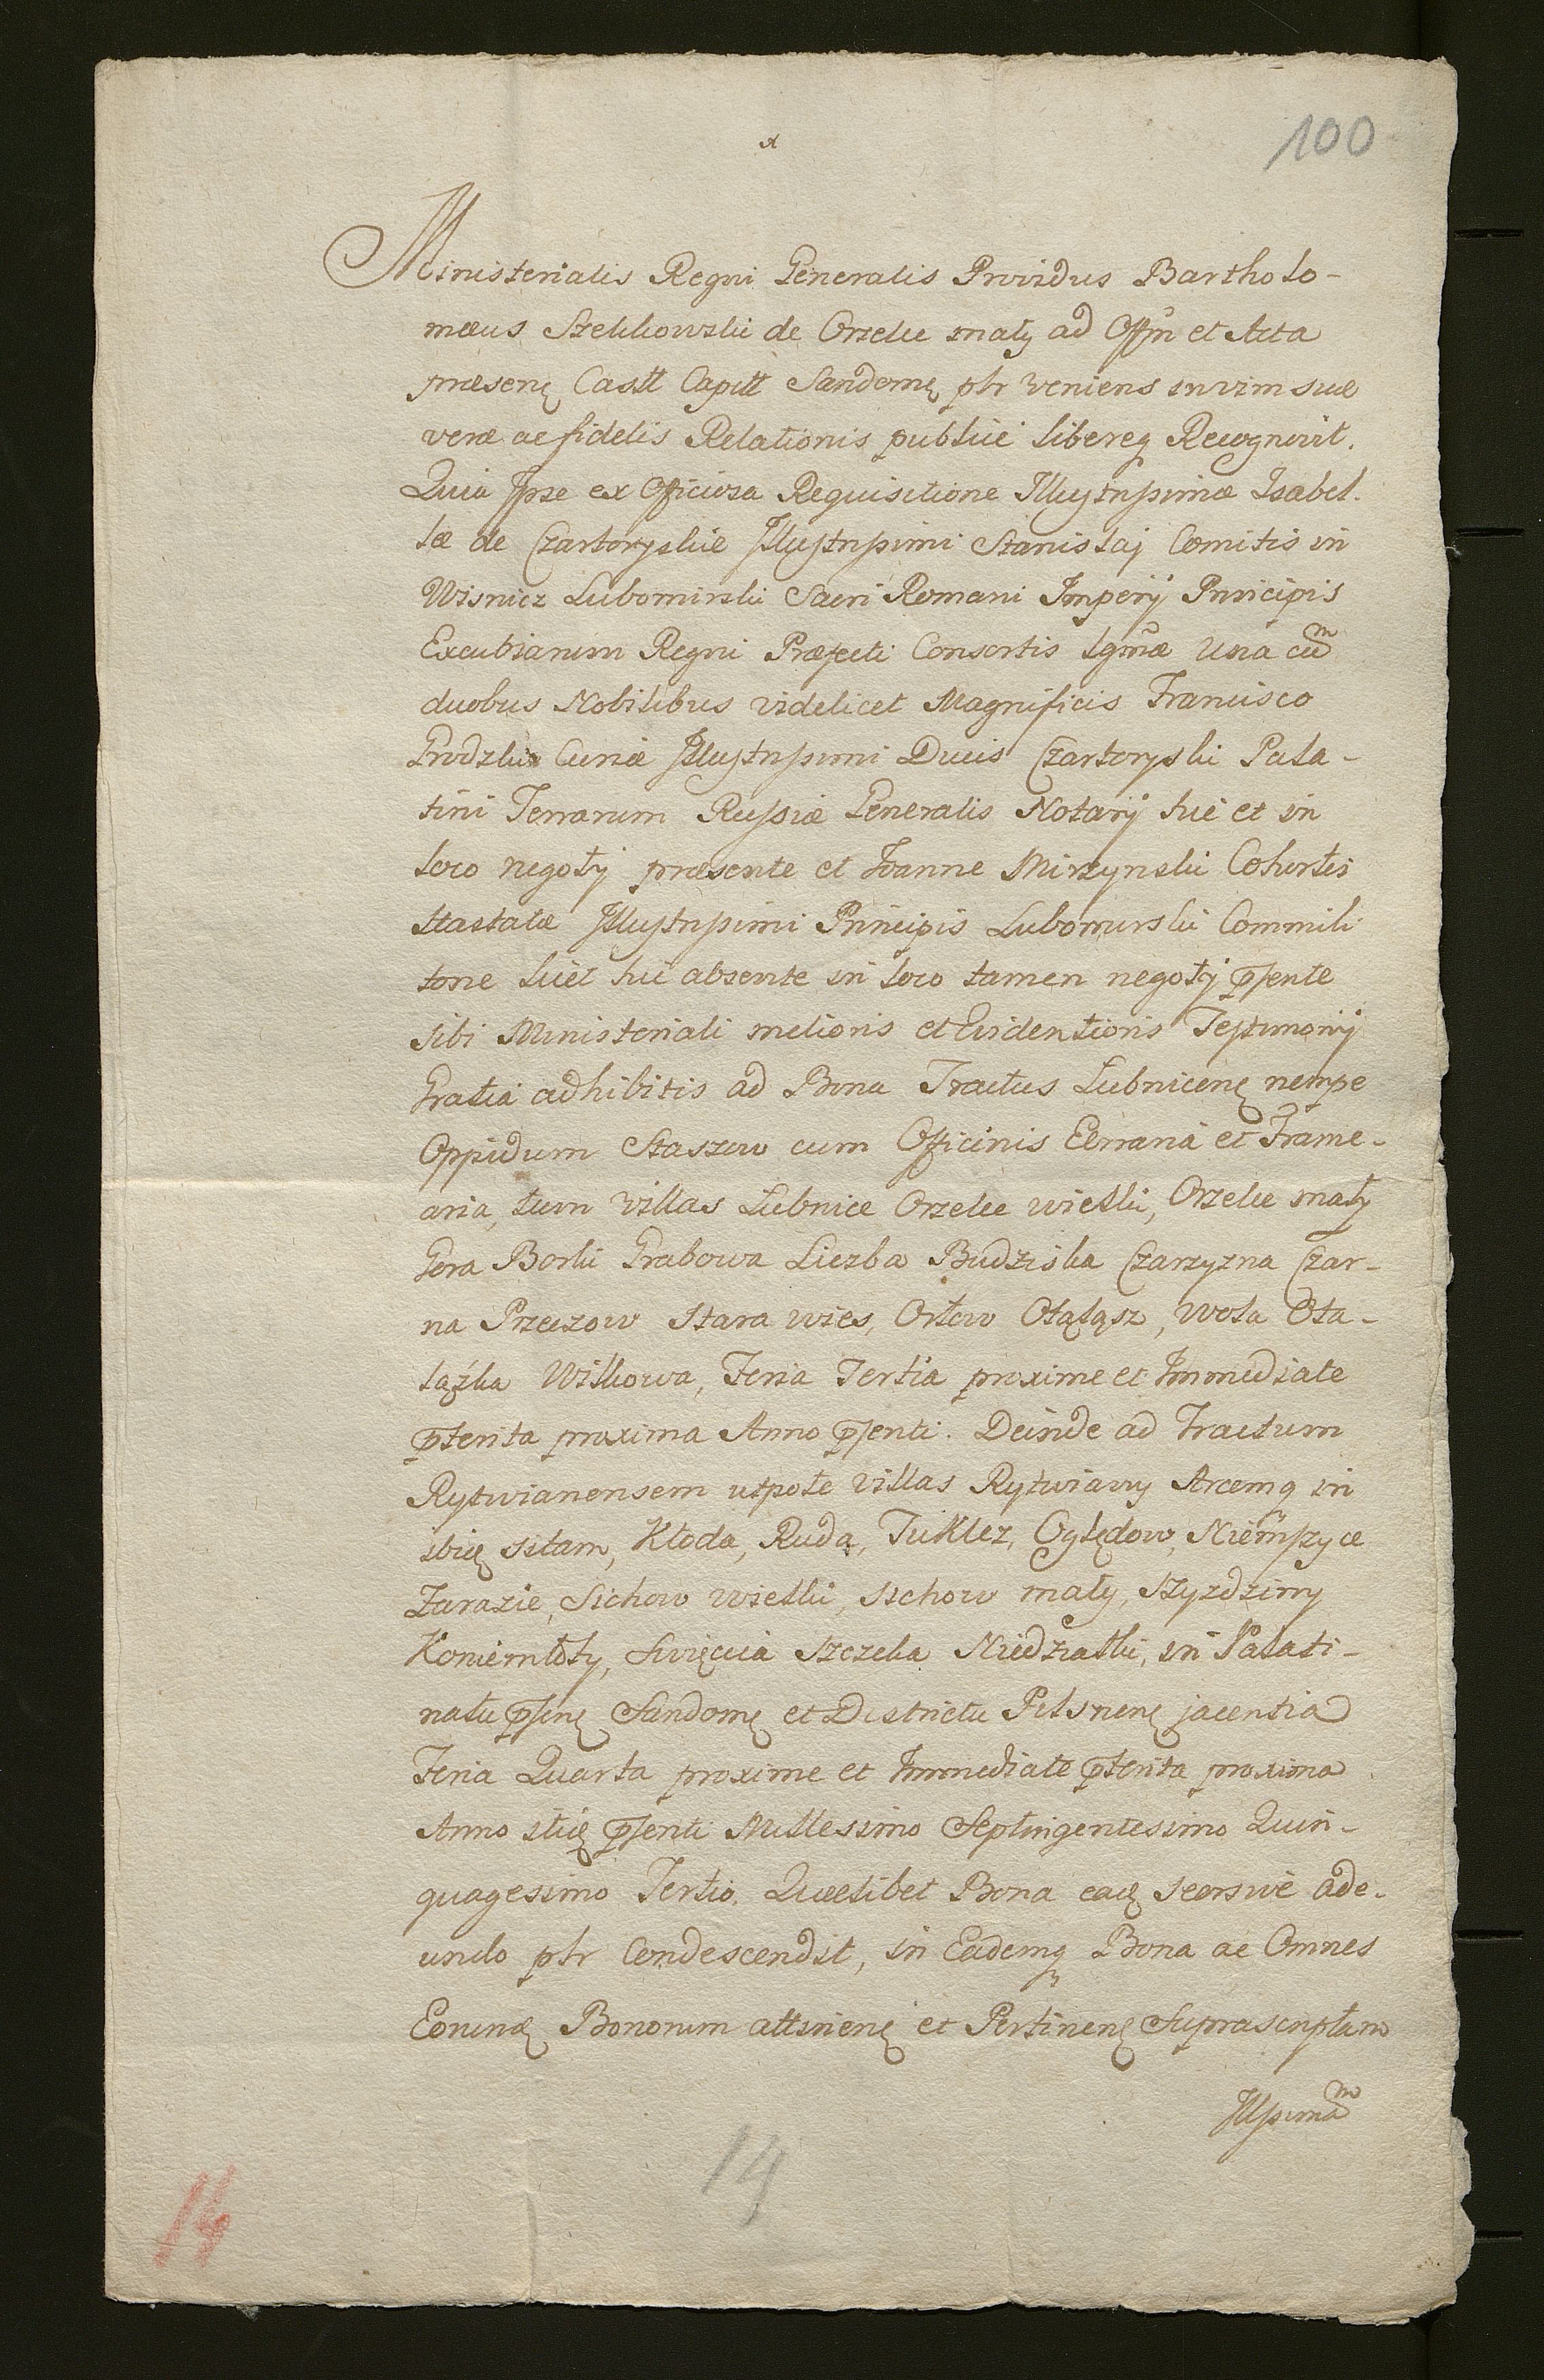 100
Ministerialis Regni Generalis Providus Bartholo-
mæus Szelikowski de Orzelce mały ad Offm et Acta
præsenę Castt Capitt Sandomę ptr veniens in vim suæ
veræ ac fidelis Relationis publice libereq Recognovit.
Quia Ipse ex Officiosa Requisitione Illustrissimæ Isabel-
læ de Czartoryskie Illustrissimi Stanislaj Comitis in
Wisnicz Lubomirski Sacri Romani Imperij Principis
Excubiarum Regni Præfecti Consortis Lgmæ Una cum
duobus Nobilibus videlicet Magnificis Francisco
Grodzki Curiæ Illustrissimi Ducis Czartoryski Pala-
tini Terrarum Russiæ Generalis Notarij hic et in
loco negotij præsente et Joanne Mirzynski Cohortis
Hastatæ Illustrissimi Principis Lubomirski Commili
tone licet hic absente in loco tamen negotij pſente
sibi Ministeriali melioris et Evidentioris Testimonij
Gratia adhibitis ad Bona Tractus Lubnicenę nempe
Oppidum Staszow cum Officinis Ferraria et Frame-
aria, tum villas Lubnice Orzelce wielki, Orzelce mały
Gora Borki Grabowa Liczba Budziska Czarzyzna Czar-
na Przeczow Stara wies, Orlow Otałąsz, Wola Ota-
łąźka Wilkowa, Feria Tertia proxime et Immediate
pterita proxima Anno pſenti. Deinde ad Tractum
Rytwianensem utpote villas Rytwiany Arcemq in
ibię sitam, Kłoda, Ruda, Tuklez, Oględow, Niemszyce
Zarazie, Sichow wielki, Sichow mały, Szyzdziny
Koniemłoty, Swięcica Szczeka Niedziałki, in Palati-
natu pſenę Sandomę et Districtu Pilsnenę jacentia
Feria Quarta proxime et Immediate pterita proxima
Anno itię pſenti Millesimo Septingentesimo Quin-
quagesimo Tertio. Quælibet Bona eaę seorsive ade-
undo ptr Condescendit, in Eademq Bona ac Omnes
Eorundę Bonorum attinenę et Pertinenę Suprascriptam
Illssimam
14
14